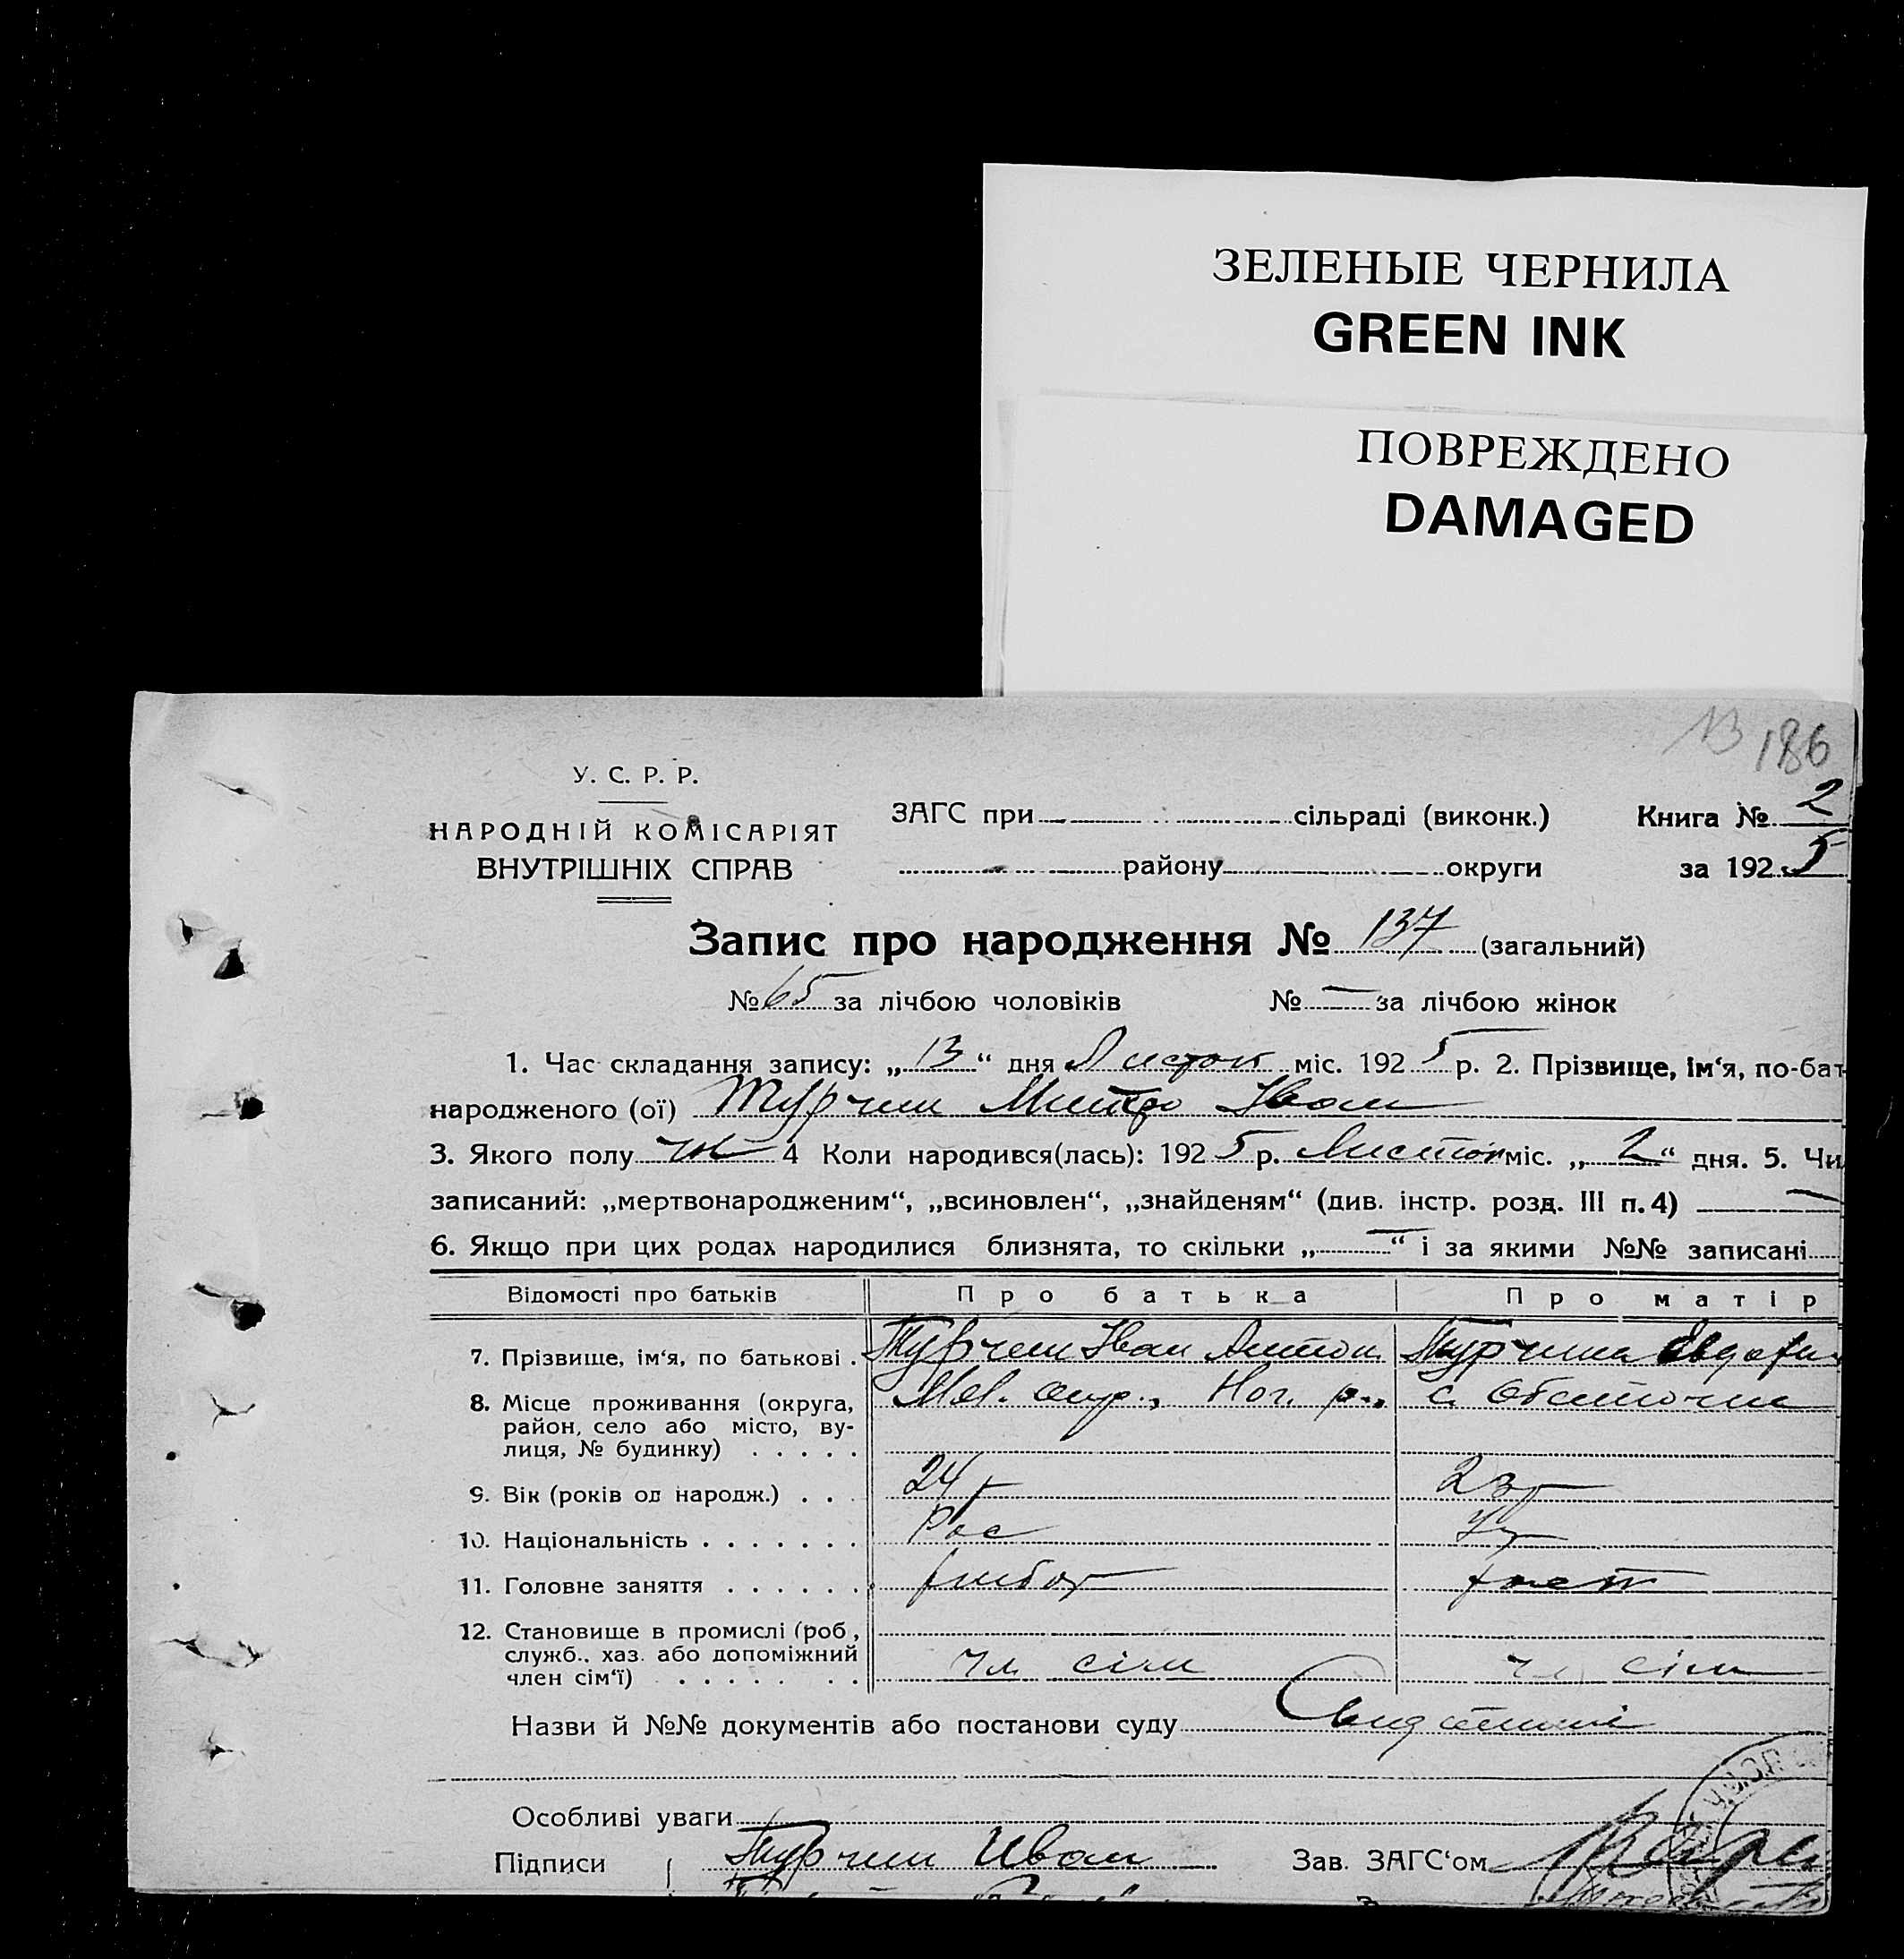 ЗЕЛЕНЫЕ ЧЕРНИЛА
GREEN INK
ПОВРЕЖДЕНО
DAMAGED
13 186
У. С. Р. Р.
НАРОДНІЙ КОМІСАРІЯТ
ВНУТРІШНІХ СПРАВ
ЗАГС при сільраді (виконк.) Книга № 2
району округи за 1925
Запис про народження № 137 (загальний)
№ 65 за лічбою чоловіків № — за лічбою жінок
1. Час складання запису: „13“ дня Листоп міс. 1925 р. 2. Прізвище, ім‘я, по-бат
народженого (ої) Турчин Митро Иван
3. Якого полу чол 4 Коли народився(лась): 1925 р. Листоп міс. „2“ дня. 5. Чи
записаний: „мертвонародженим“, „всиновлен“, „знайденям“ (див. інстр. розд. III п. 4) —
6. Якщо при цих родах народилися близнята, то скільки „—“ і за якими №№ записані
Відомості про батьків Про батька Про матір
7. Прізвище, ім‘я, по батькові . Турчин Иван Антон Турчина Евдоким
8. Місце проживання (округа, Мел. окр., Ног. р., с. Обиточне
район, село або місто, ву-
лиця, № будинку) . . . . .
9. Вік (років од народж.) . . . 24 р 23 р
10. Національність . . . . . . . Рос Ук
11. Головне заняття . . . . . .
12. Становище в промислі (роб,
служб., хаз. або допоміжний чл сіми чл сім
член сім‘ї) . . . . . . .
Назви й №№ документів або постанови суду
Особливі уваги
Підписи Турчин Иван Зав. ЗАГС‘ом